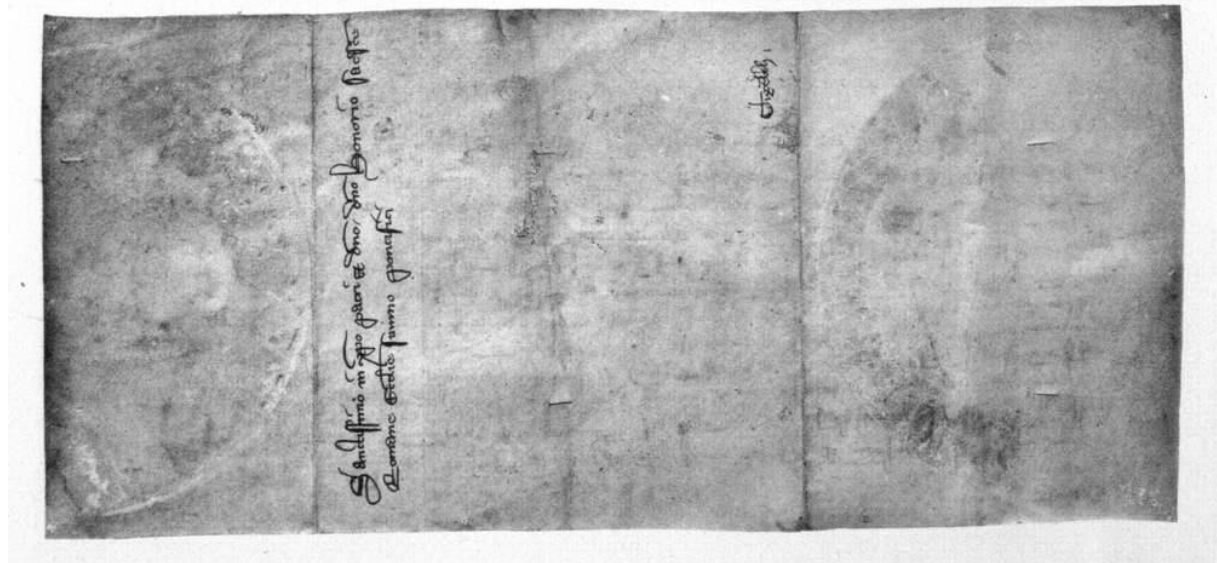 Sanctissimo in xpo patri et dno. dno Honorio sacrosce
Romane Ecclie summo pontifici